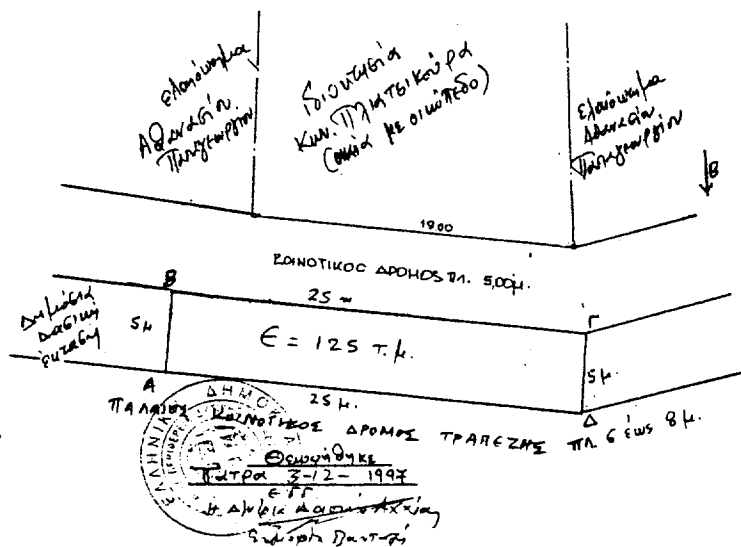 ελαιόκτημα
Αθανασίου
Παπαγεωργίου
Ιδιοκτησία
Κων. Πλιατσικούρα
(οικία με οικόπεδο)
Ελαιόκτημα
Αθανασίου
Παπαγεωργίου
Β
1900
ΚΟΙΝΟΤΙΚΟΣ ΔΡΟΜΟΣ ΠΛ. 5,00μ.
Β
25 μ
Γ
Δημόσια
Δασική
έκταση
5μ
Ε = 125 τ.μ.
5μ.
Α
25 μ.
Δ
ΠΑΛΑΙΟΣ ΚΟΙΝΟΤΙΚΟΣ ΔΡΟΜΟΣ ΤΡΑΠΕΖΗΣ ΠΛ. 6 έως 8 μ.
ΕΛΛΗΝΙΚΗ ΔΗΜΟΚΡΑΤΙΑ
Θεωρήθηκε
Πάτρα 3-12-1997